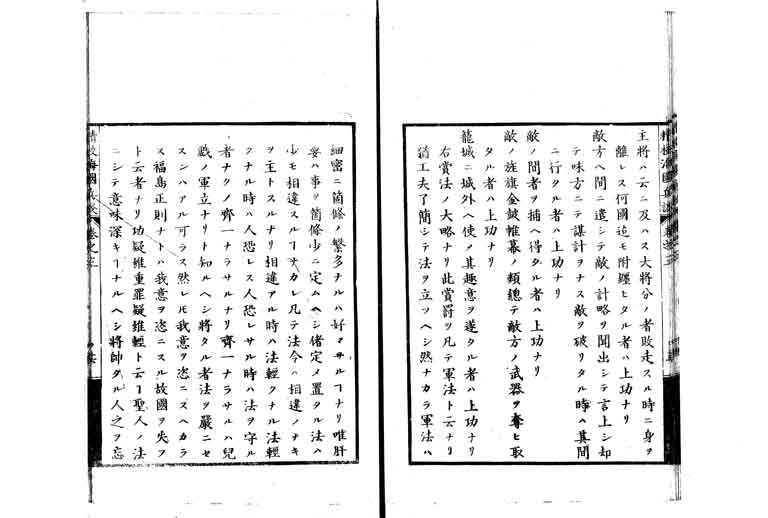 主将ハ云ニ及ハス大将分ノ者敗走スル時ニ身ヲ
離レス何國迠モ附纒ヒタル者ハ上功ナリ
敵方ヘ間ニ遣シテ敵ノ計略ヲ聞出シテ言上シ却
テ味方ニテ謀計ヲナス敵ヲ破リタル時ハ其間
ニ行タル者ハ上功ナリ
敵ノ間者ヲ捕ヘ得タル者ハ上功ナリ
敵ノ旌旗金鼓帷幕ノ類總テ敵方ノ武器ヲ奪ヒ取
タル者ハ上功ナリ
籠城ニ城外ヘ使ノ其趣意ヲ遂タル者ハ上功ナリ
右賞法ノ大略ナリ此賞罰ヲ凡テ軍法ト云ナリ
猶工夫了簡シテ法ヲ立ツヘシ然ナカラ軍法ハ
細密ニ箇條ノ繁多ナルハ好マサルヿナリ唯肝
要ハ事ヲ箇條少ニ定ムヘシ偖定メ置タル法ハ
少モ相違スルヿナカレ凡テ法令ハ相違ノナキ
ヲ主トスルナリ相違アル時ハ法輕クナル法輕
クナル時ハ人恐レス人恐レサル時ハ法ヲ守ル
者ナクノ齊一ナラサルナリ齊一ナラサルハ兒
戲ノ軍立ナリト知ルヘシ將タル者法ヲ嚴ニセ
スンハアル可ラス然レ𪜈我意ヲ恣ニスヘカラ
ス福島正則ナトハ我意ヲ恣ニスル故國ヲ失フ
ト云者ナリ功疑維重罪疑維輕ト云ヿ聖人ノ法
ニシテ意味深キヿナルヘシ將帥タル人之ヲ忘
精校海國兵談 卷之三